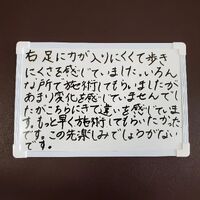 右足に力が入りにくくて歩き
にくさを感じていました。いろん
な所で施術してもらいましたが
あまり変化を感じていませんでし
たがこちらにきて違いを感じていま
す。もっと早く施術してもらいたかった
です。この先楽しみでしょうがない
です。